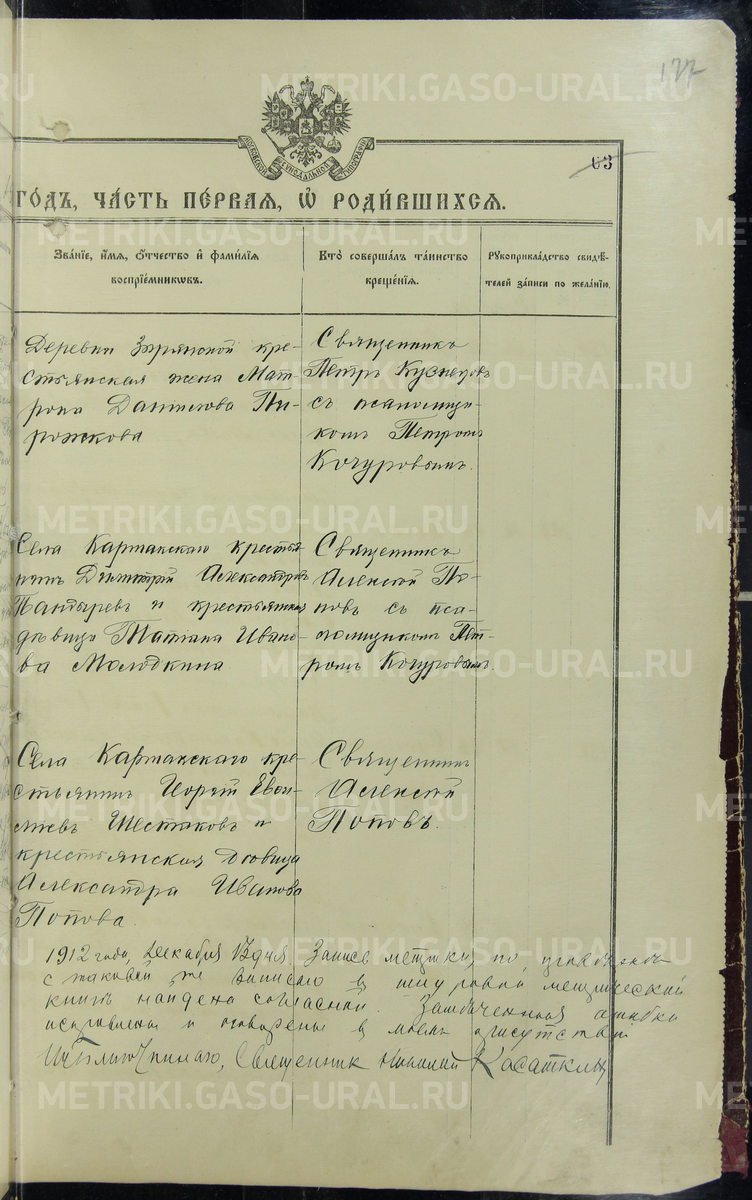 177
METRIKI.GASO-URAL.RU
МОСКОВСКОЙ СѴНОДАЛЬНОЙ ТИПОГРАФІИ
63
ГО́ДЪ, ЧА́СТЬ ПЕ́РВАЯ, Ѡ РОДИ́ВШИХСЯ.
Зва́нїе, и́мя, ѻ́тчество и҆ фами́лїя
воспрїе́мникѡвъ.
Кто̀ соверша́лъ та́инство
креще́нїя.
Рукоприкла́дство свидѣ́-
телей за́писи по жела́нїю.
Деревни Зыряновой кре-
стьянская жена Мат-
рона Данилова Пи-
рожкова
Священникъ
Петръ Кузнецовъ
съ псаломщи-
комъ Петромъ
Кочуровымъ.
Села Карпакскаго крестья-
нинъ Димитрій Александровъ
и крестьянская
дѣвица Татіана Ивано-
ва Молодкина
Священникъ
Алексій По-
повъ съ пса-
ломщикомъ Пет-
ромъ Кочуровымъ.
Села Карпакскаго кре-
стьянинъ Георгій Евси-
міевъ Шестаковъ и
крестьянская дѣвица
Александра Иванова
Попова.
Священникъ
Алексій
Поповъ.
1912 года, Декабря дня. Запись метрики, по
съ таковой же записью въ шнуровой метрической
книгѣ найдена согласной. Замѣченныя ошибки
исправлены и оговорены въ моемъ присутствіи
Священникъ Касаткинъ